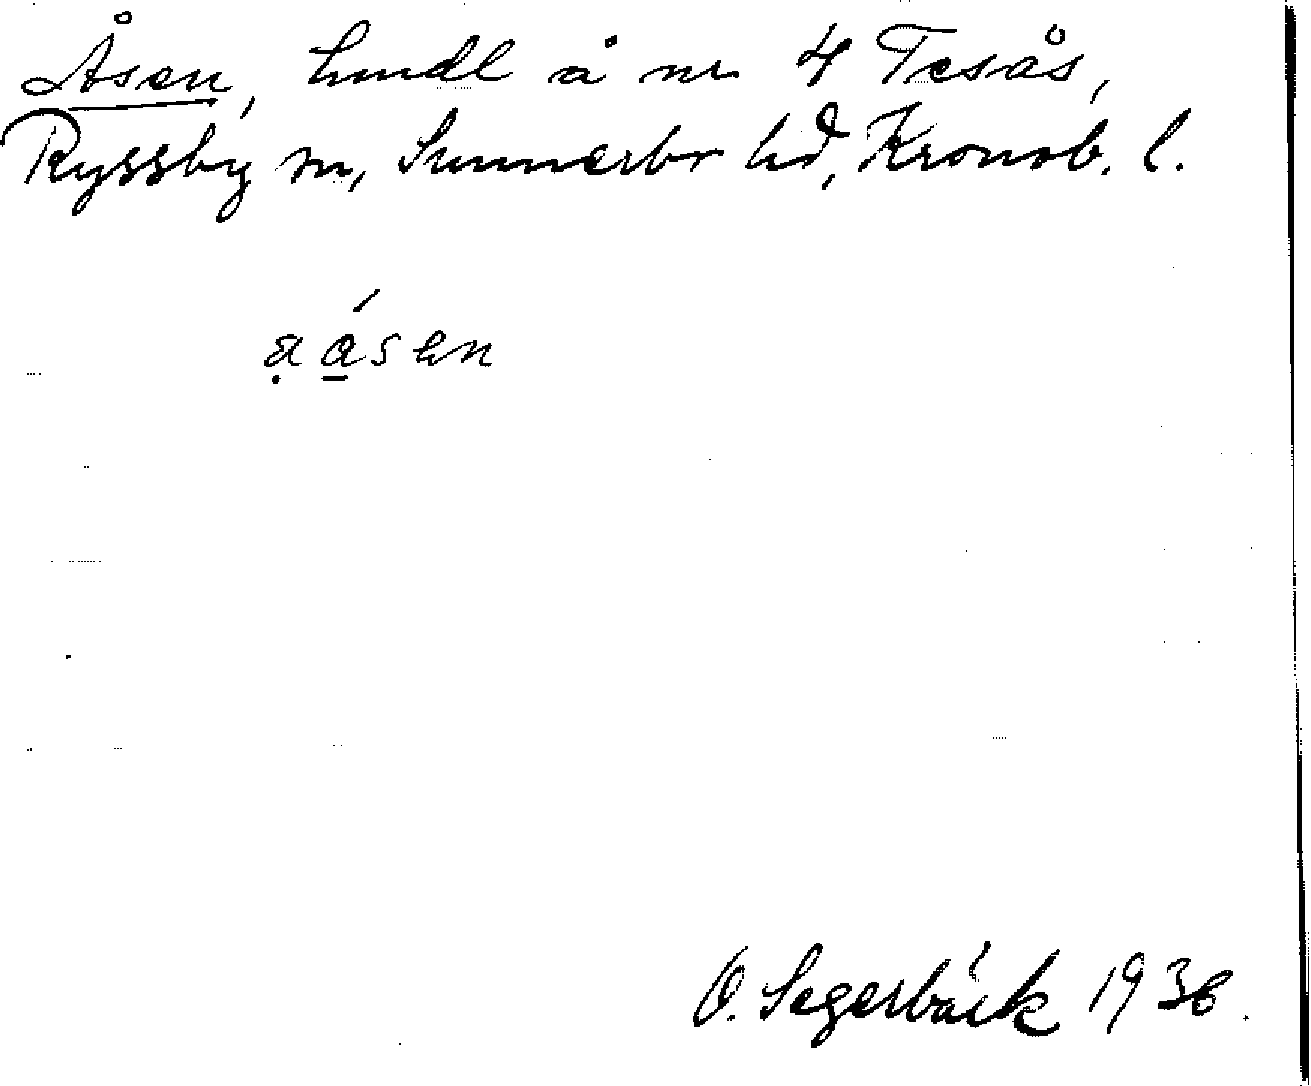 Åsen, hmdl å nr 4 Tesås,
Ryssby sn, Sunnerbo hd, Kronob. l.
O. Segerbäck 1936.